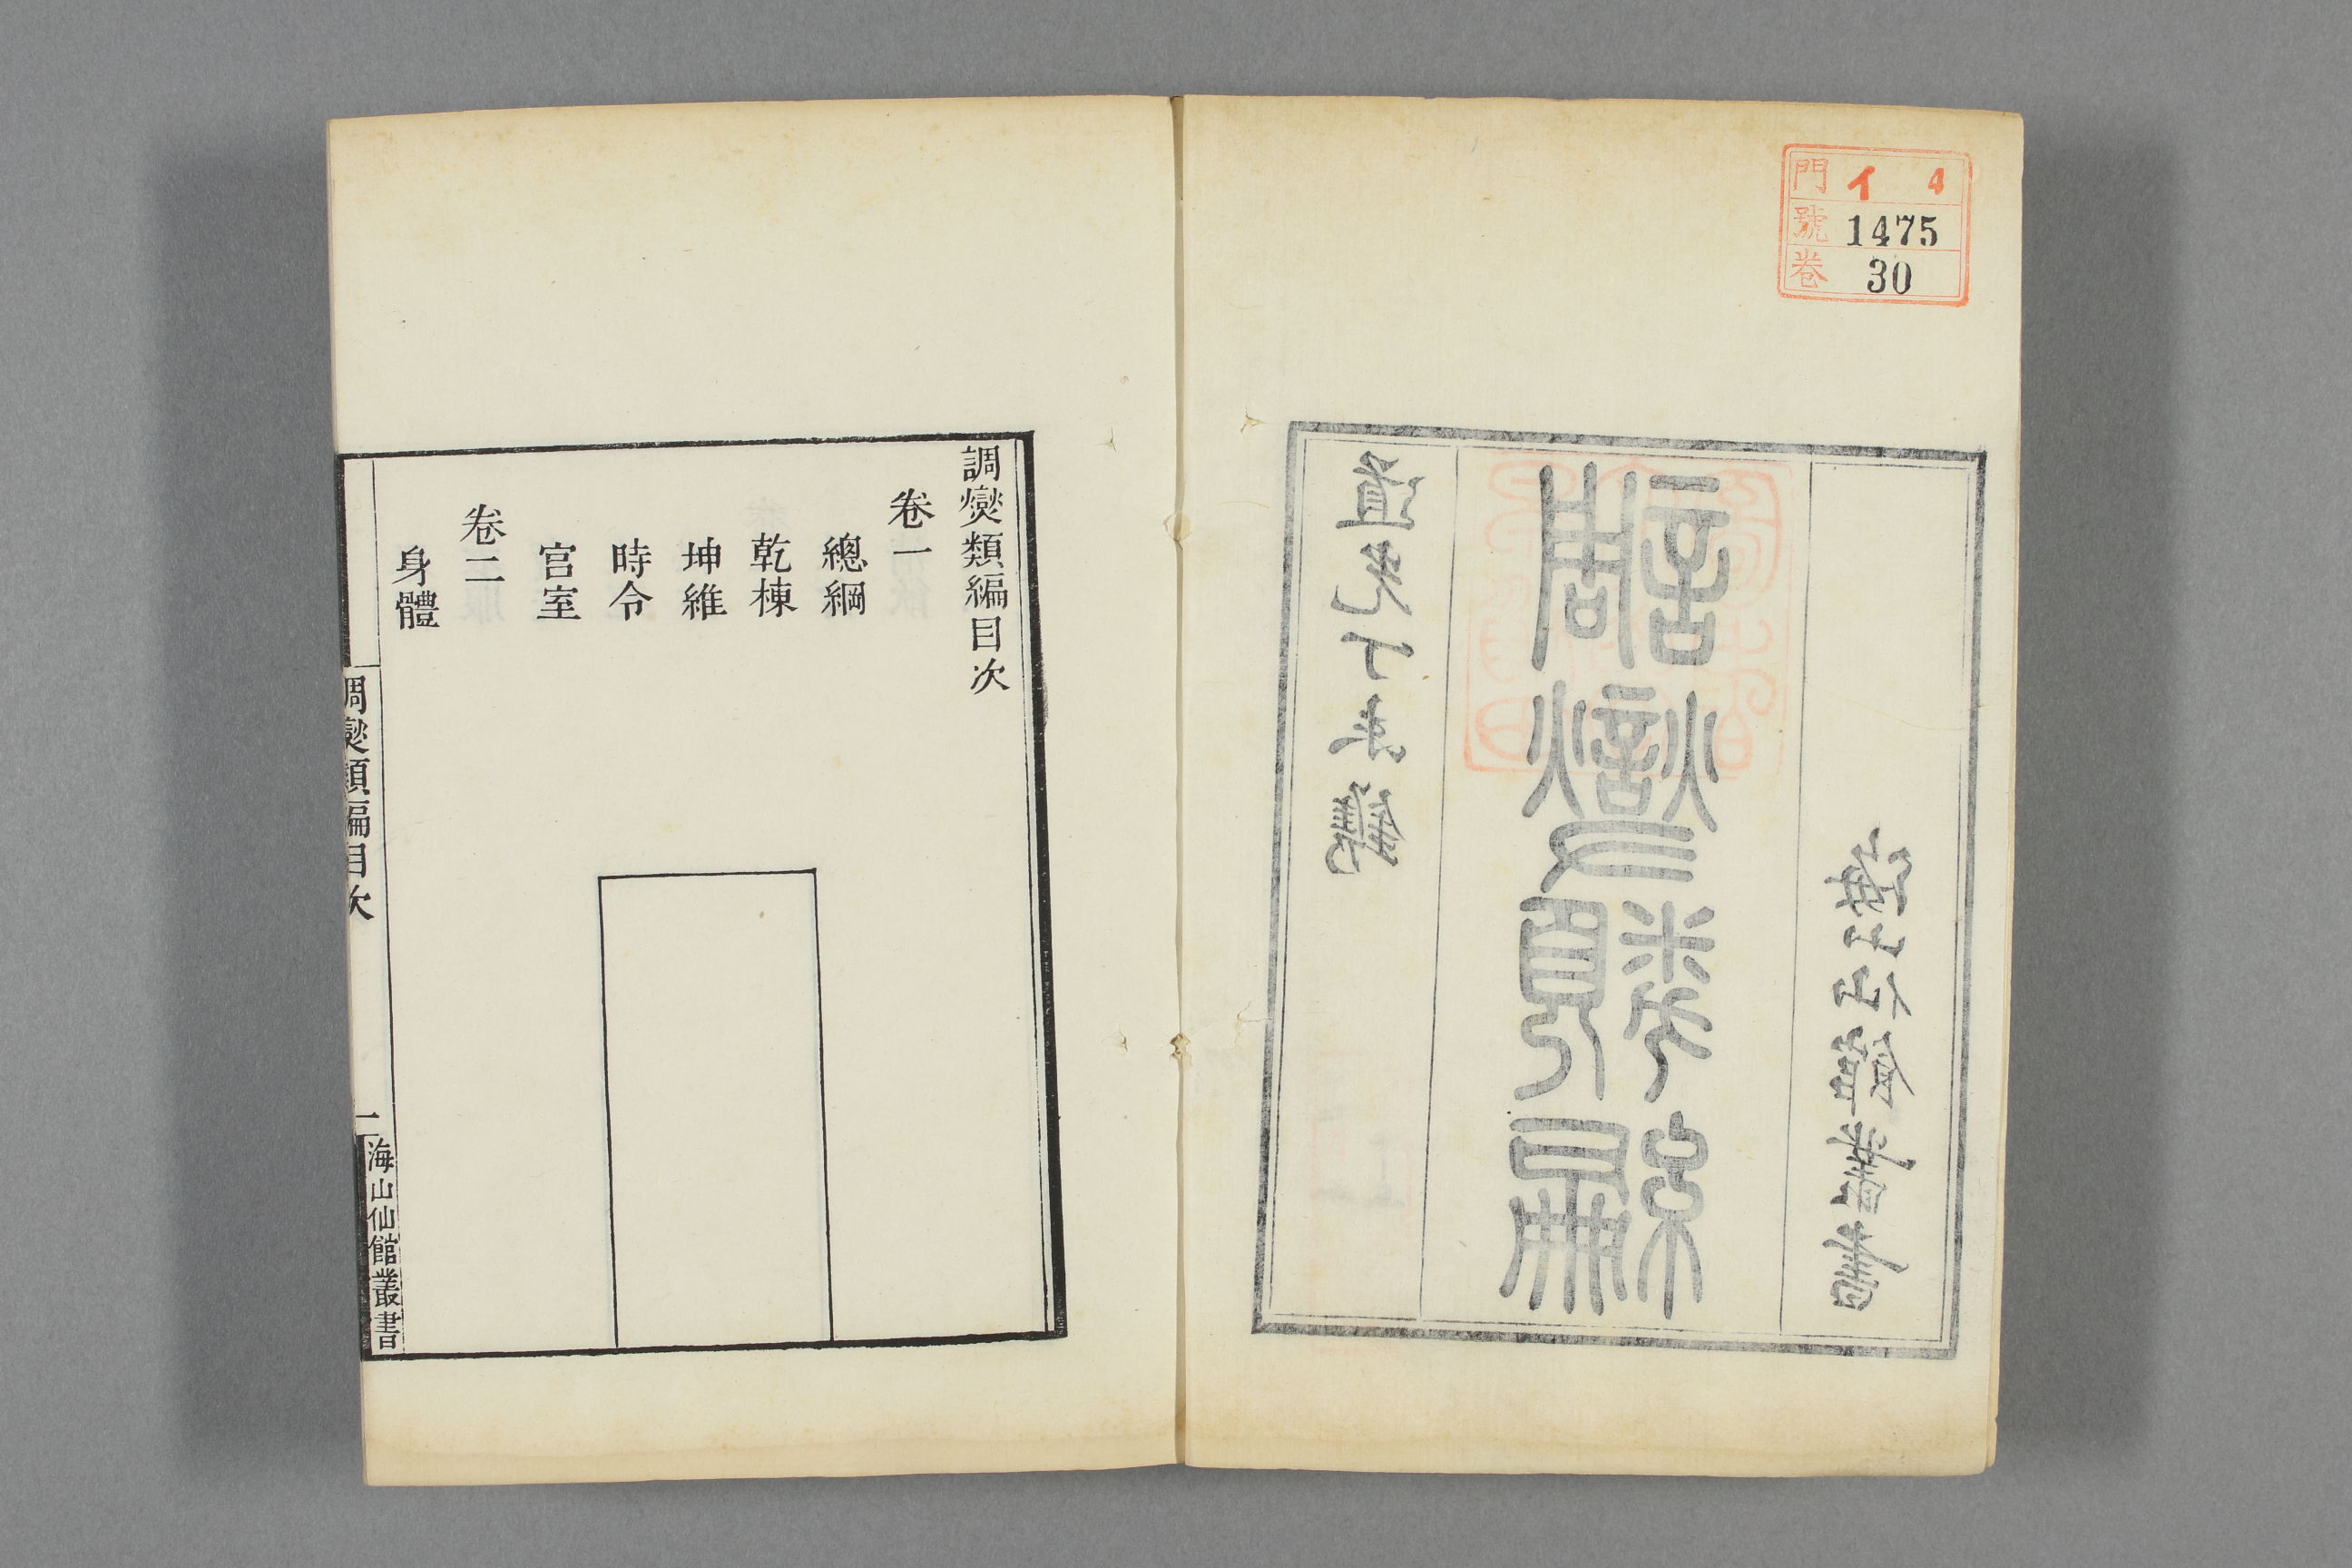 門 イ 4
號 1475
卷 30
道光丁未鐫
調燮類編
海山仙館叢書
調燮類編目次
卷一
總綱
乾棟
坤維
時令
宮室
卷二
身體
調燮類編目次
一
海山仙館叢書